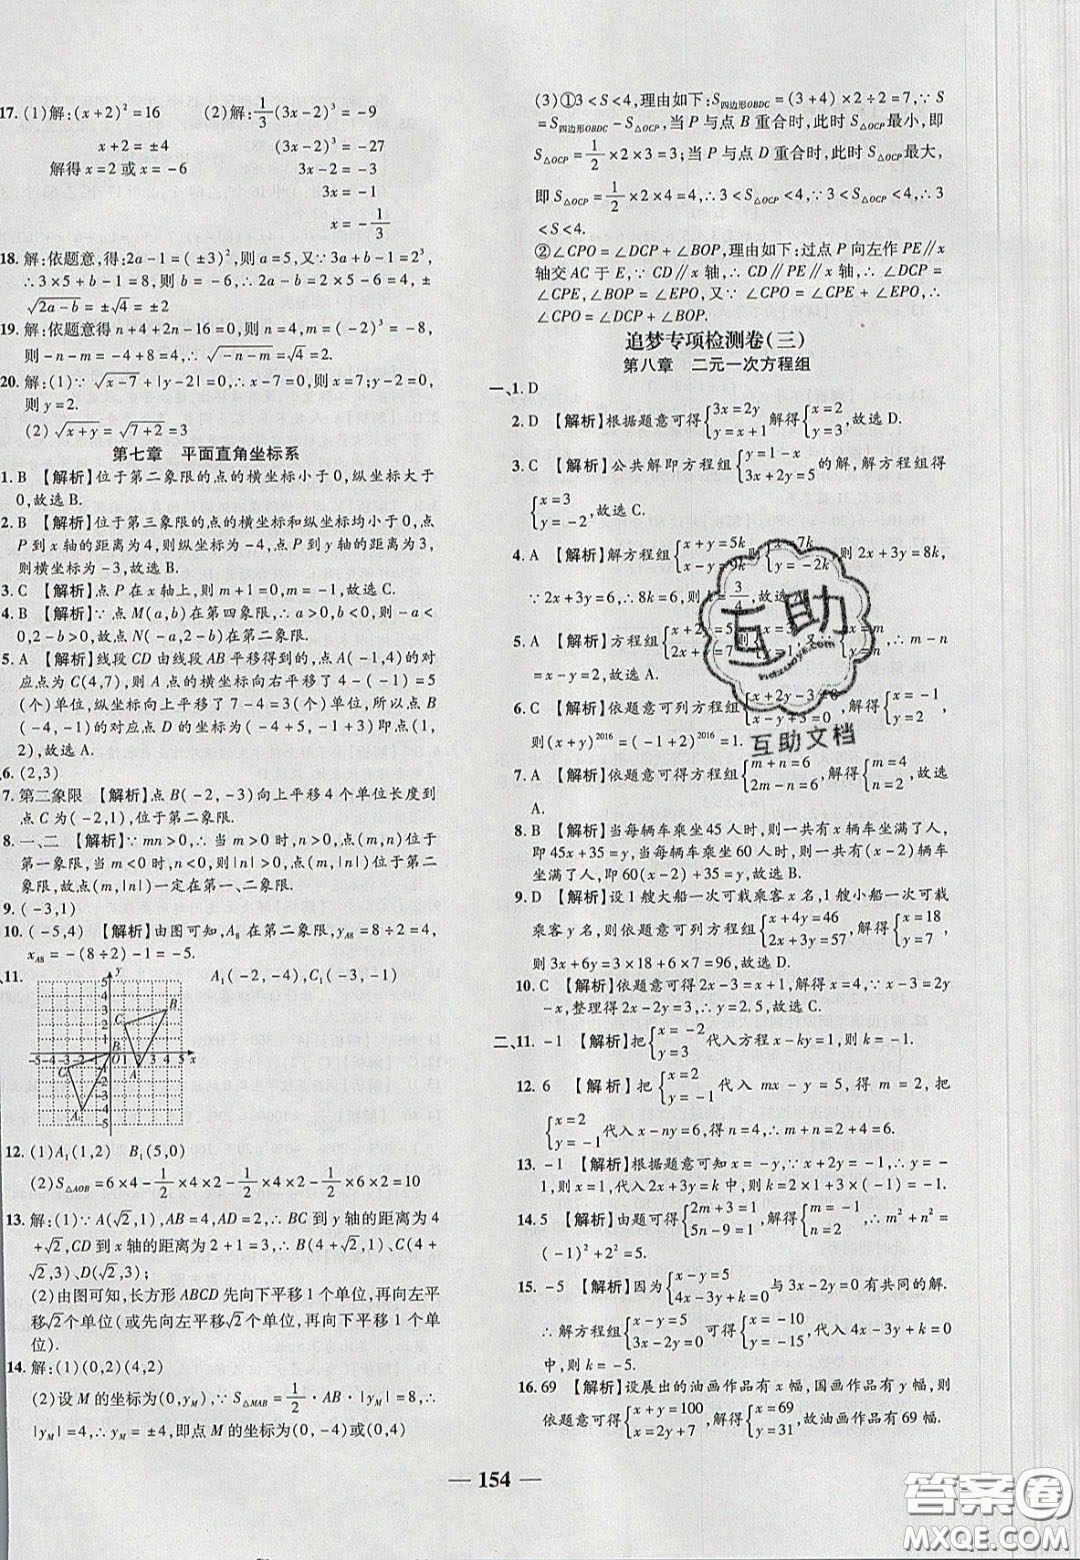 17. (1)解:(x+2)²=16 (2)解:1/3(3x-2)³=-9
x+2=±4 (3x-2)³=-27
解得x=2或x=-6 3x-2=-3
3x=-1
x=-1/3
18. 解:依题意,得:2a-1=(±3)²,则a=5,又∵3a+b-1=2³,
∴3×5+b-1=8,则b=-6,∴2a-b=2×5-6=4,±
√(2a-b)=±√4=±2
19. 解:依题意得n+4+2n-16=0,n=4,m=(-2)³=-8,
则-n-m=-4+8=4,∴√(-n-m)=√4=2
20. 解:(1)∵√(x-7)+|y-2|=0,∴x-7=0,y-2=0,则x=7,
则y=2.
(2)√(x+y)=√(7+2)=3
第七章 平面直角坐标系
1. B 【解析】位于第二象限的点的横坐标小于0,纵坐标大于
0,故选B.
2. B 【解析】位于第三象限的点的横坐标和纵坐标均小于0,点
P到x轴的距离为4,则纵坐标为-4,点P到y轴的距离为3,
则横坐标为-3,故选B.
3. C 【解析】点P在x轴上,则m+1=0,m=-1,故选C.
4. B 【解析】∵点M(a,b)在第四象限,∴a>0,b<0,则-a<
0,2-b>0,故点N(-a,2-b)在第二象限.
5. A 【解析】线段CD由线段AB平移得到的,点A(-1,4)的对
应点为C(4,7),则A点的横坐标向右平移了4-(-1)=5
(个)单位,纵坐标向上平移了7-4=3(个)单位,所以点
B(-4,-1)的对应点D的坐标为(-4+5,-1+3)即点(1,
2),故选A.
6. (2,3)
7. 第二象限 【解析】点B(-2,-3)向上平移4个单位长度后到
点C为(-2,1),位于第二象限.
8. 一、二 【解析】∵mn>0,∴当m>0时,n>0,点(m,n)位于
第一象限,当m<0时,n<0,则|n|>0,点(m,|n|)位于第二
象限,故点(m,|n|)一定在第一、二象限.
9. (-3,1)
10. (-5,4) 【解析】由图可知,A₈在第二象限,y_A8=8÷2=4,
x_A8=-(8÷2)-1=-5.
11. A₁(-2,-4),C₁(-3,-1)
12. (1)A₁(1,2) B₁(5,0)
(2)S△AOB=6×4-1/2×4×2-1/2×4×4-1/2×6×2=10
13. 解:(1)∵A(√2,1),AB=4,AD=2,∴BC到y轴的距离为4
+√2,CD到x轴的距离为2+1=3,∴B(4+√2,1),C(4+
√2,3)、D(√2,3);
(2)由图可知,长方形ABCD先向下平移1个单位,再向左平
移√2个单位(或先向左平移√2个单位,再向下平移1个单
位).
14. 解:(1)(0,2)(4,2)
(2)设M的坐标为(0,y_M),∵S△MAB=1/2·AB·|y_M|=8,∴
|y_M|=4,∴y_M=±4,即点M的坐标为(0,-4)或(0,4)
(3)①3<S<4,理由如下:S四边形OBDC=(3+4)×2÷2=7,∵S
=S四边形OBDC-S△OCP,当P与点B重合时,此时S△OCP最小,即
S△OCP=1/2×2×3=3;当P与点D重合时,此时S△OCP最大,
即S△OCP=1/2×2×4=4,∴3<S△OCP<4,∴3<7-S△OCP<4,∴3
<S<4.
②∠CPO=∠DCP+∠BOP,理由如下:过点P向左作PE∥x
轴交AC于E,∵CD∥x轴,∴CD∥PE∥x轴,∴∠DCP=
∠CPE,∠BOP=∠EPO,又∵∠CPO=∠CPE+∠EPO,
∴∠CPO=∠DCP+∠BOP.
追梦专项检测卷(三)
第八章 二元一次方程组
一、1. D
2. D 【解析】根据题意可得{3x=2y y=x+1 解得{x=2 y=3,故选D.
3. C 【解析】公共解即方程组{y=1-x 3x+2y=5的解,解方程组得
{x=3 y=-2,故选C.
4. A 【解析】解方程组{x+y=5k x-y=9k得{x=7k y=-2k,则2x+3y=8k,
∵2x+3y=6,∴8k=6,则k=3/4,故选A.
5. A 【解析】方程组
∴m-n
=x-y=2,故选A.
6. C 【解析】依题意可列方程组 解得{x=-1 y=2,
则(x+y)²⁰¹⁶=(-1+2)²⁰¹⁶=1.
7. A 【解析】依题意可得方程组{m+n=6 2m-n=6,解得{m=4 n=2,故选
A.
8. B 【解析】当每辆车乘坐45人时,则一共有x辆车坐满了人,
即45x+35=y,当每辆车乘坐60人时,则一共有(x-2)辆车
坐满了人,即60(x-2)+35=y,故选B.
9. D 【解析】设1艘大船一次可载乘客x名,1艘小船一次可载
乘客y名,则可列方程组{x+4y=46 2x+3y=57,解得{x=18 y=7,
则3x+6y=3×18+6×7=96,故选D.
10. C 【解析】依题意可得2x-3=x+1,解得x=4,x-3=2y
-x,整理得2x-2y=3,∴y=2.5,故选C.
二、11. -1 【解析】把{x=-2 y=3代入方程x-ky=1,则k=-1.
12. 6 【解析】把{x=2 y=-1代入mx-y=5,得m=2,把
{x=2 y=-1代入x-ny=6,得n=4,∴m+n=2+4=6.
13. -1 【解析】根据题意可知x=-y,∵x+2y=-1,∴y=
-1,则x=1,代入2x+3y=k,得k=2×1+3×(-1)=-1.
14. 5 【解析】由题可得{2m+3=1 5n-9=1,解得{m=-1 n=2,∴m²+n²=
(-1)²+2²=5.
15. -5 【解析】因为{x-y=5 4x-3y+k=0与3x-2y=0有共同的解.
∴解方程组{x-y=5 3x-2y=0可得{x=-10 y=-15,代入4x-3y+k=0
中,则k=-5.
16. 69 【解析】设展出的油画作品有x幅,国画作品有y幅,则
依题意可得{x+y=100 x=2y+7,解得{x=69 y=31,故油画作品有69幅.
— 154 —
互助
互助文档
答案圈
MXQE.COM